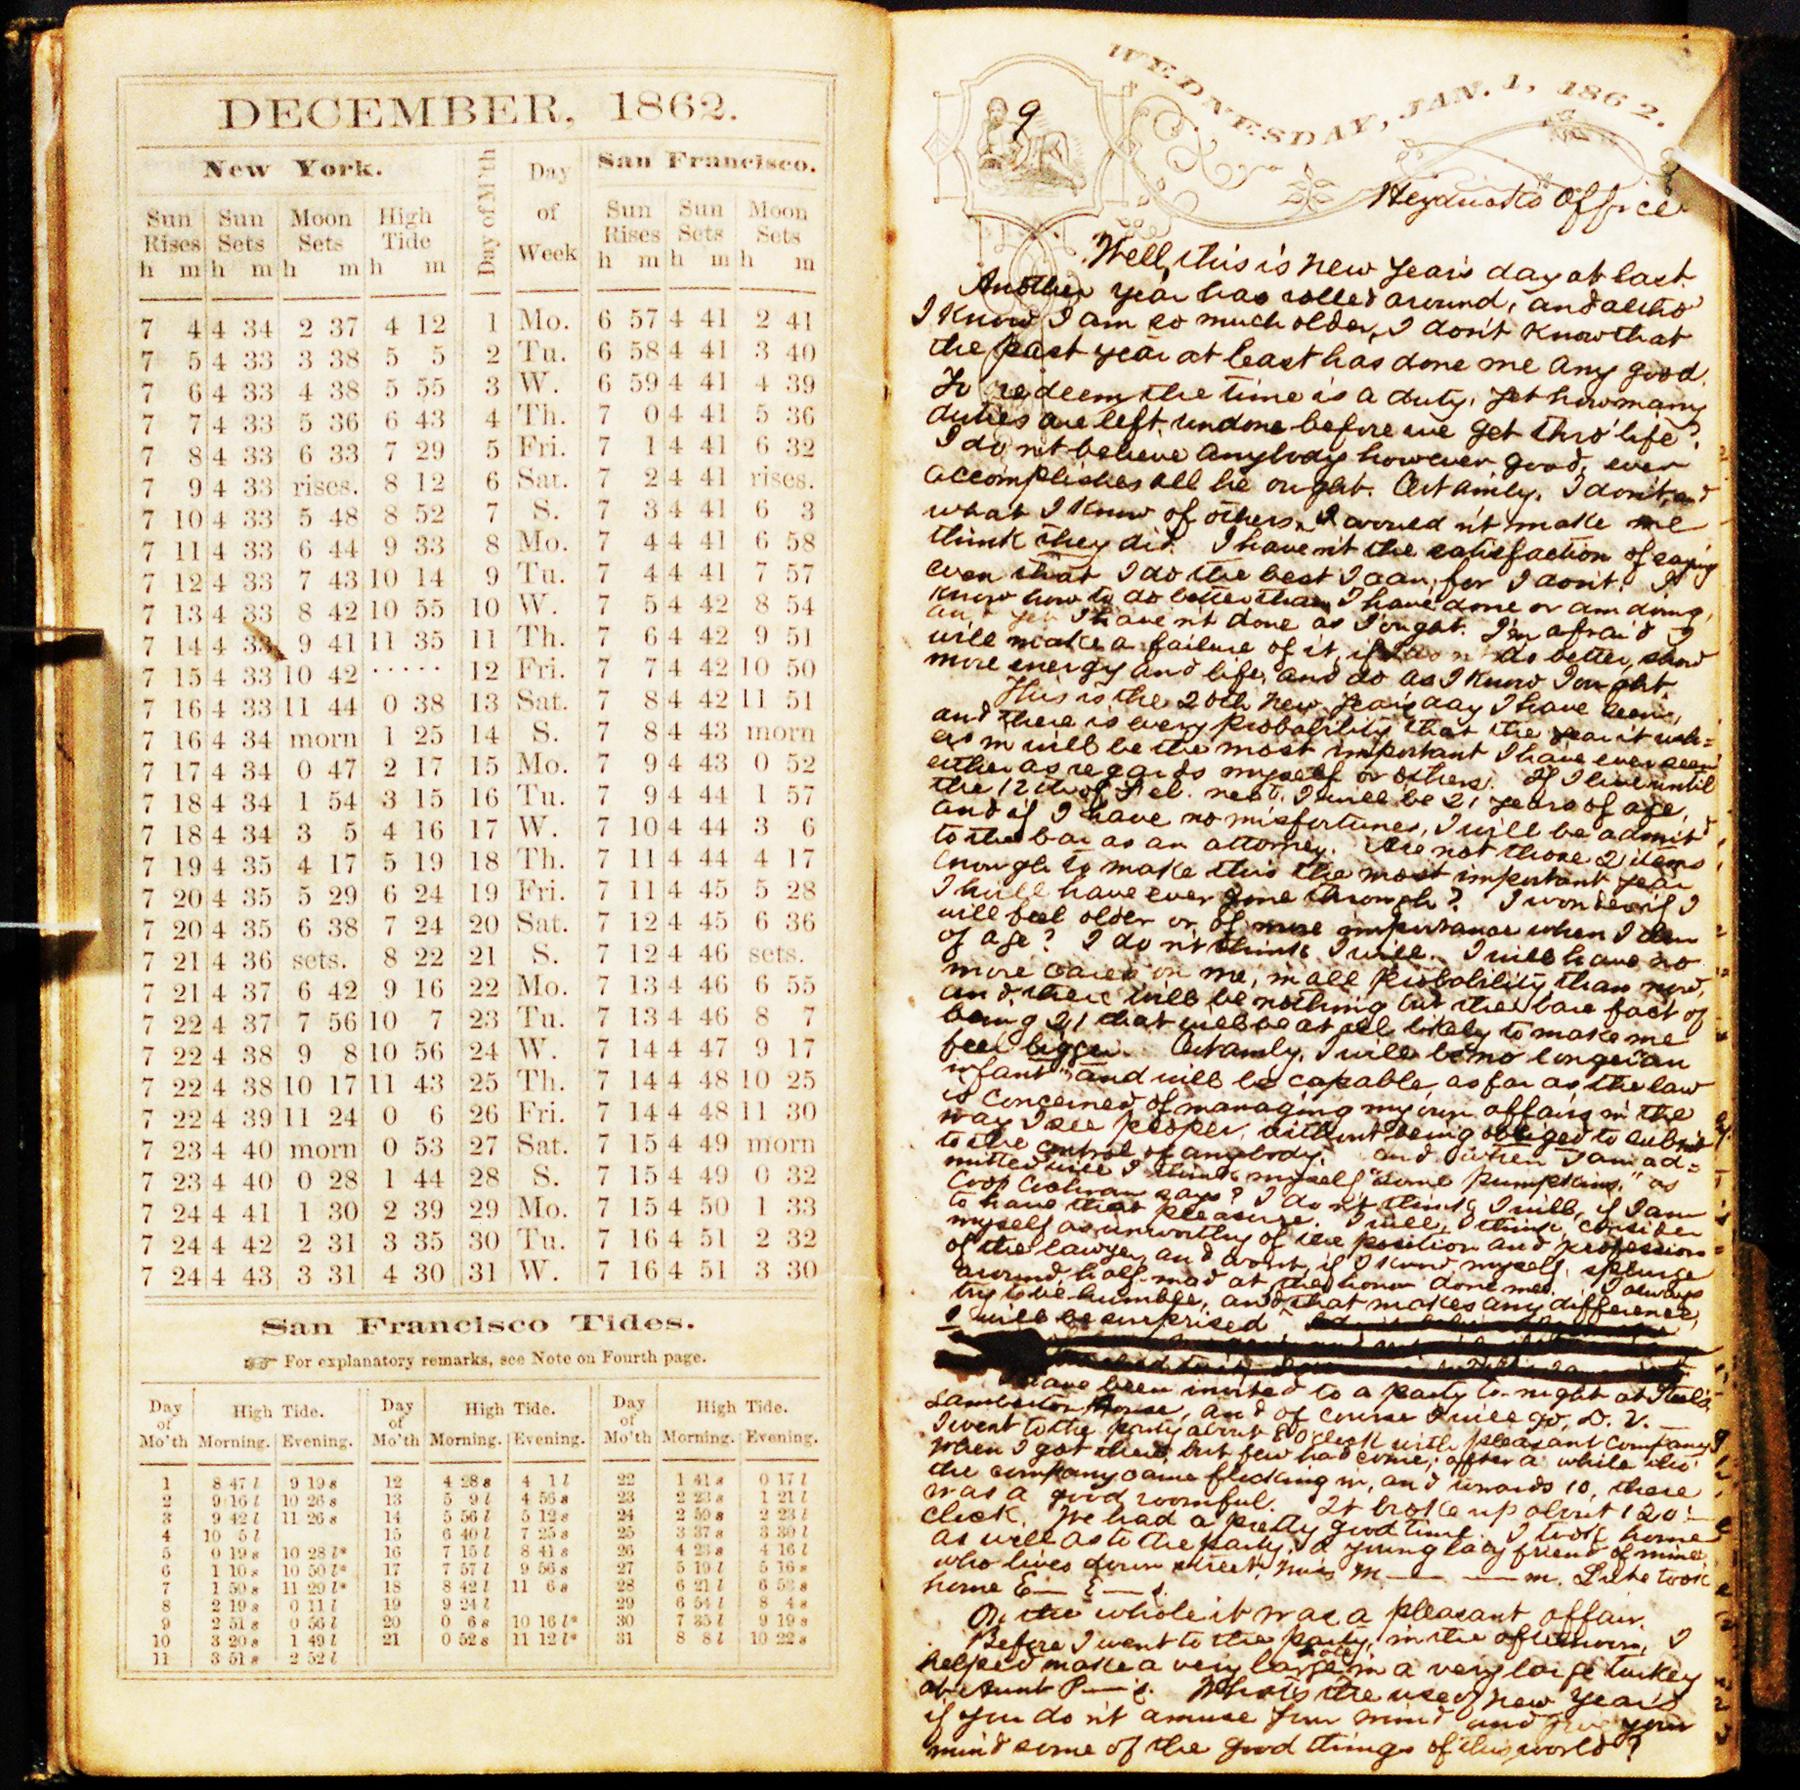 DECEMBER, 1862.
New York. Day of M'th Day of Week San Francisco.
Sun Rises Sun Sets Moon Sets High Tide Sun Rises Sun Sets Moon Sets
h m h m h m h m h m h m h m
7 4 4 34 2 37 4 12 1 Mo. 6 57 4 41 2 41
7 5 4 33 3 38 5 5 2 Tu. 6 58 4 41 3 40
7 6 4 33 4 38 5 55 3 W. 6 59 4 41 4 39
7 7 4 33 5 36 6 43 4 Th. 7 0 4 41 5 36
7 8 4 33 6 33 7 29 5 Fri. 7 1 4 41 6 32
7 9 4 33 rises. 8 12 6 Sat. 7 2 4 41 rises.
7 10 4 33 5 48 8 52 7 S. 7 3 4 41 6 3
7 11 4 33 6 44 9 33 8 Mo. 7 4 4 41 6 58
7 12 4 33 7 43 10 14 9 Tu. 7 4 4 41 7 57
7 13 4 33 8 42 10 55 10 W. 7 5 4 42 8 54
7 14 4 33 9 41 11 35 11 Th. 7 6 4 42 9 51
7 15 4 33 10 42 ..... 12 Fri. 7 7 4 42 10 50
7 16 4 33 11 44 0 38 13 Sat. 7 8 4 42 11 51
7 16 4 34 morn 1 25 14 S. 7 8 4 43 morn
7 17 4 34 0 47 2 17 15 Mo. 7 9 4 43 0 52
7 18 4 34 1 54 3 15 16 Tu. 7 9 4 44 1 57
7 18 4 34 3 5 4 16 17 W. 7 10 4 44 3 6
7 19 4 35 4 17 5 19 18 Th. 7 11 4 44 4 17
7 20 4 35 5 29 6 24 19 Fri. 7 11 4 45 5 28
7 20 4 35 6 38 7 24 20 Sat. 7 12 4 45 6 36
7 21 4 36 sets. 8 22 21 S. 7 12 4 46 sets.
7 21 4 37 6 42 9 16 22 Mo. 7 13 4 46 6 55
7 22 4 37 7 56 10 7 23 Tu. 7 13 4 46 8 7
7 22 4 38 9 8 10 56 24 W. 7 14 4 47 9 17
7 22 4 38 10 17 11 43 25 Th. 7 14 4 48 10 25
7 22 4 39 11 24 0 6 26 Fri. 7 14 4 48 11 30
7 23 4 40 morn 0 53 27 Sat. 7 15 4 49 morn
7 23 4 40 0 28 1 44 28 S. 7 15 4 49 0 32
7 24 4 41 1 30 2 39 29 Mo. 7 15 4 50 1 33
7 24 4 42 2 31 3 35 30 Tu. 7 16 4 51 2 32
7 24 4 43 3 31 4 30 31 W. 7 16 4 51 3 30
San Francisco Tides.
☞ For explanatory remarks, see Note on Fourth page.
Day of Mo'th High Tide. Day of Mo'th High Tide. Day of Mo'th High Tide.
Morning. Evening. Morning. Evening. Morning. Evening.
1 8 47 l 9 19 s 12 4 28 s 4 1 l 22 1 41 s 0 17 l
2 9 16 l 10 26 s 13 5 9 l 4 56 s 23 2 23 s 1 21 l
3 9 42 l 11 26 s 14 5 56 l 5 12 s 24 2 59 s 2 23 l
4 10 5 l 15 6 40 l 7 25 s 25 3 37 s 3 30 l
5 0 19 s 10 28 l* 16 7 15 l 8 41 s 26 4 23 s 4 16 l
6 1 10 s 10 50 l* 17 7 57 l 9 56 s 27 5 19 l 5 16 s
7 1 50 s 11 20 l* 18 8 42 l 11 6 s 28 6 21 l 6 53 s
8 2 19 s 0 11 l 19 9 24 l 29 6 54 l 8 4 s
9 2 51 s 0 56 l 20 0 6 s 10 16 l* 30 7 35 l 9 19 s
10 3 20 s 1 49 l 21 0 52 s 11 12 l* 31 8 8 l 10 22 s
11 3 51 s 2 52 l
WEDNESDAY, JAN. 1, 1862.
9
Office
Well, this is New Year's day at last.
Another year has rolled around, and altho'
I know I am so much older, I don't know that
the past year at least has done me any good.
To redeem the time is a duty. Yet how many
duties are left undone before we get thro' life?
I do n't believe anybody however good, ever
accomplishes all he ought. Certainly, I don't and
what I know of others, would n't make me
think they did. I have n't the satisfaction of saying
even that I do the best I can, for I don't. I
know how to do better than I have done or am doing,
and yet I have n't done as I ought. I'm afraid I
will make a failure of it, if I do n't do better, show
more energy and life, and do as I know I ought.
This is the 20th New Year's day I have seen,
and there is every probability that the year it ush=
ers in will be the most important I have ever seen
either as regards myself or others. If I live until
the 12th of Feb. next, I will be 21 years of age,
and if I have no misfortunes, I will be admit'd
to the bar as an attorney. Are not those 2 items
enough to make this the most important year
I will have ever gone through? I wonder if I
will feel older or of more importance when I am
of age? I do n't think I will. I will have no
more cares on me, in all probability than now,
and there will be nothing but the bare fact of
being 21 that will be at all likely to make me
feel bigger. Certainly, I will be no longer "an
infant" and will be capable as far as the law
is concerned of managing my own affairs in the
way I see proper, without being obliged to submit
to the control of anybody. And when I am ad=
mitted will I think myself "some pumpkins," as
says? I do n't think I will, if I am
to have that pleasure. I will, I think, consider
myself as unworthy of the position and profession
of the lawyer, and wont, if I know myself, splurge
around half-mad at the honor done me. I always
try to be humble, and that makes any difference,
I will be surprised
I have been invited to a party to-night at Steel's
Lamberton House, and of course I will go, D. V. —
I went to the party about 8 O'clock with pleasant company
When I got there but few had come; after a while tho'
the company came flocking in, and towards 10, there
was a good roomful. It broke up about 12 O'
clock. We had a pretty good time. I took home
as well as to the party, a young lady friend of mine,
who lives down street, Miss M— —m. Luke took
home E— E—s.
On the whole it was a pleasant affair.
Before I went to the party, in the afternoon, I
helped make a very large hole in a very large turkey
at Aunt P—s. What's the use of New Year's
if you do n't amuse your mind and give your
mind some of the good things of this world?